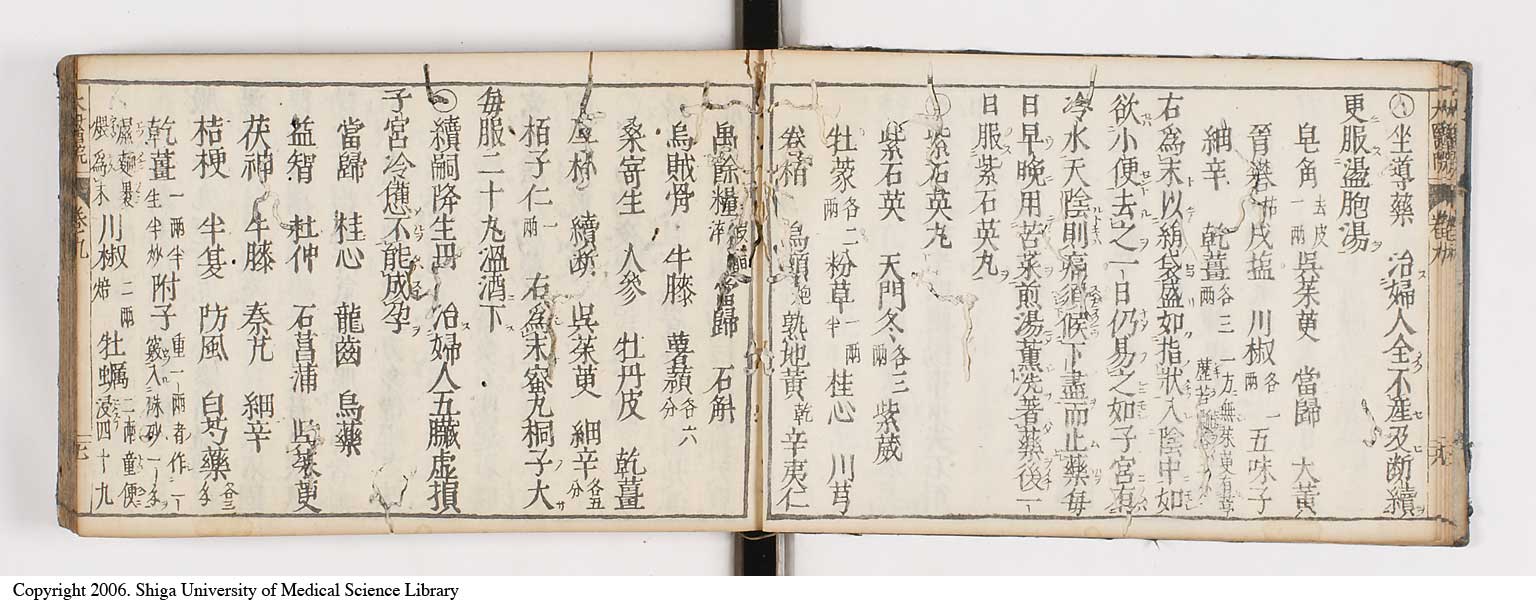 坐導藥 治婦人全不産及斷續
更服盪胞湯
皂角 去皮一兩 吳茱萸 當歸 大黄
晉礬 枯 戎塩 川椒 各一兩 五味子
細辛 乾薑 各三兩 一方無茱萸有
右爲末以絹袋盛如指狀入陰中如
欲小便去之一日仍易之如子宮有
冷水天陰則痛須候下盡而止藥毎
日早晚用苦菜煎湯薰洗著藥後一
日服紫石英丸
紫石英丸
紫石英 天門冬 各三兩 紫葳
牡蒙 各二兩 粉草 一兩半 桂心 川芎
卷栢 烏頭 炮 熟地黄 乾 辛夷仁
禹餘糧 當歸 石斛
烏賊骨 牛膝 薯蕷 各六分
桑寄生 人參 牡丹皮 乾薑
厚朴 續斷 吳茱萸 細辛 各五分
栢子仁 一兩 右爲末蜜丸桐子大
毎服二十丸溫酒下
續嗣降生丹 治婦人五臟虛損
子宮冷憊不能成孕
當歸 桂心 龍齒 烏藥
益智 杜仲 石菖蒲 吳茱萸
茯神 牛膝 秦艽 細辛
桔梗 半夏 防風 白芍藥 各三
乾薑 一兩半生半炒 附子 重一兩者作一竅入硃砂一
濕麵裹煨爲末 川椒 二兩焙 牡蠣 二兩童便浸四十九
卷九
Copyright 2006. Shiga University of Medical Science Library